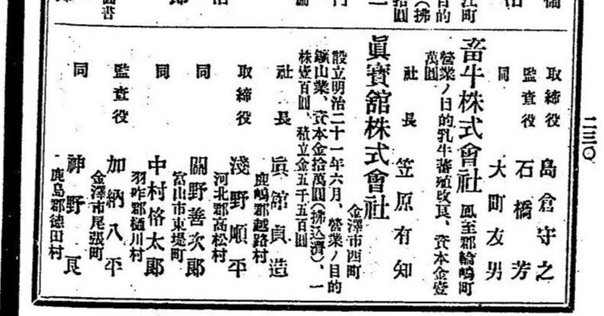 二三〇
取締役 島倉守之
監査役 石橋芳
同 大町友男
畜牛株式會社 鳳至郡輪嶋町
營業ノ目的乳牛蕃殖改良、資本金壹
萬圓
社長 笠原有知
眞寶舘株式會社 金澤市西町
設立明治二十一年六月、營業ノ目的
鑛山業、資本金拾萬圓(拂込濟)、一
株壹百圓、積立金五千五百圓
社長 眞舘貞造
鹿嶋郡越路村
取締役 淺野順平
河北郡高松村
同 關野善次郎
富山市東堤町
同 中村恪太郎
羽咋郡樋川村
監査役 加納八平
金澤市尾張町
同 神野良
鹿島郡徳田村